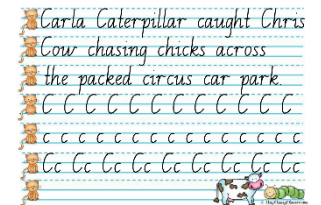 Carla Caterpillar caught Chris
Cow chasing chicks across
the packed circus car park.
C C C C C C C C C C C C
c c c c c c c c c c c c c c
Cc Cc Cc Cc Cc Cc Cc Cc Cc